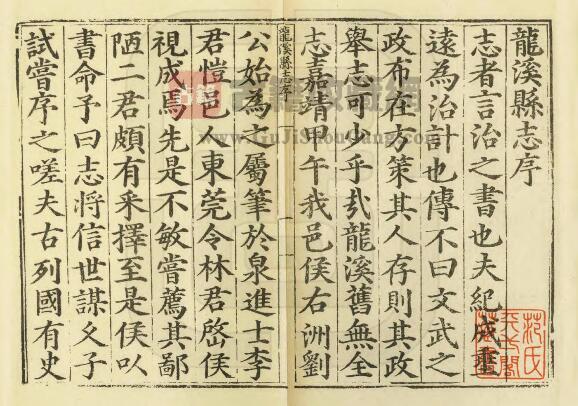 龍溪縣志序
志者言治之書也夫紀成垂
遠為治計也傳不曰文武之
政布在方策其人存則其政
舉志可少乎哉龍溪舊無全
志嘉靖甲午我邑侯右洲劉
龍溪縣志序
一
公始為之屬筆於泉進士李
君愷邑人東莞令林君啓侯
視成焉先是不敏嘗薦其鄙
陋二君頗有采擇至是侯以
書命予曰志將信世謀爻子
試嘗序之嗟夫古列國有史
www.GuJiShouCang.com